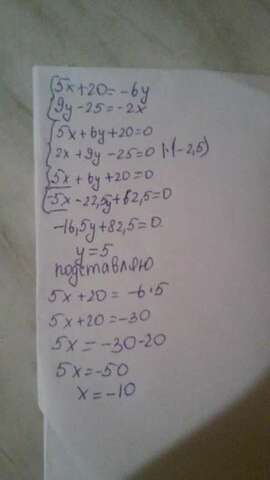 {5x+20=-6y
{9y-25=-2x
{5x+6y+20=0
{2x+9y-25=0 |·(-2,5)
{5x+6y+20=0
{-5x-22,5y+62,5=0
-16,5y+82,5=0
y=5
подставляю
5x+20=-6·5
5x+20=-30
5x=-30-20
5x=-50
x=-10